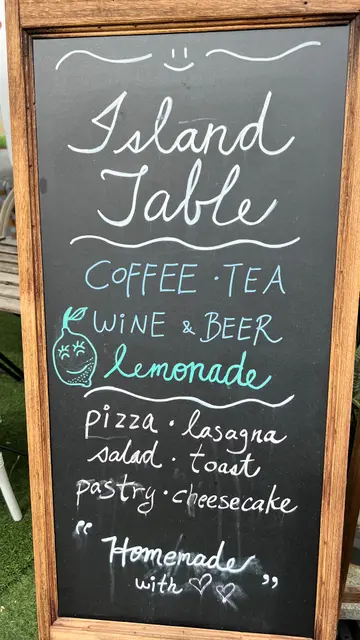 Island
Table
COFFEE · TEA
WiNE & BEER
lemonade
pizza · lasagna
salad · toast
pastry · cheesecake
“Homemade
with ♡♡”